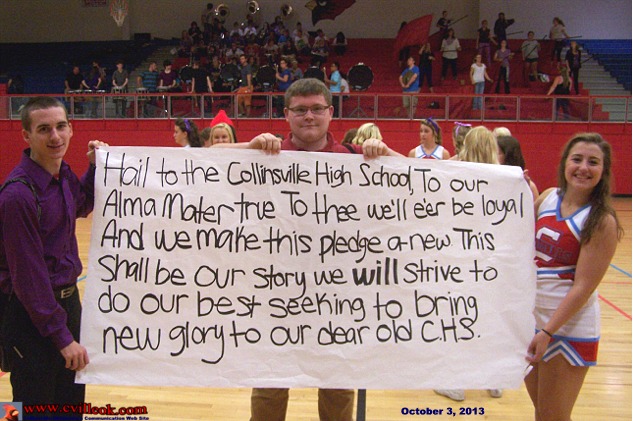 Hail to the Collinsville High School, To our
Alma Mater true To thee we'll e'er be loyal
And we make this pledge a-new This
Shall be our story we will strive to
do our best seeking to bring
new glory to our dear old C.H.S.
C
www.cvilleok.com
Communication Web Site
October 3, 2013